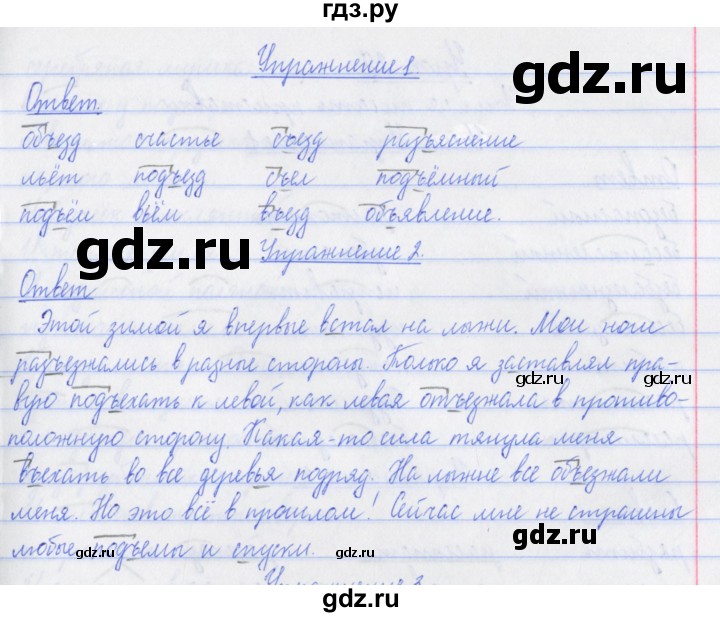 гдз.ру
Упражнение 1.
gdz.ru
Ответ
объезд счастье съезд разъяснение
льёт подъезд съел подъёмный
подъём вьём въезд объявление.
gdz.ru
Упражнение 2.
Ответ
Этой зимой я впервые встал на лыжи. Мои ноги
разъезжались в разные стороны. Только я заставлял пра-
gdz.ru gdz.ru
вую подъехать к левой, как левая отъезжала в противо-
положную сторону. Какая-то сила тянула меня
въехать во все деревья подряд. На лыжне все объезжали
меня. Но это всё в прошлом! Сейчас мне не страшны
любые подъемы и спуски.
gdz.ru gdz.ru
Упражнение 3
gdz.ru